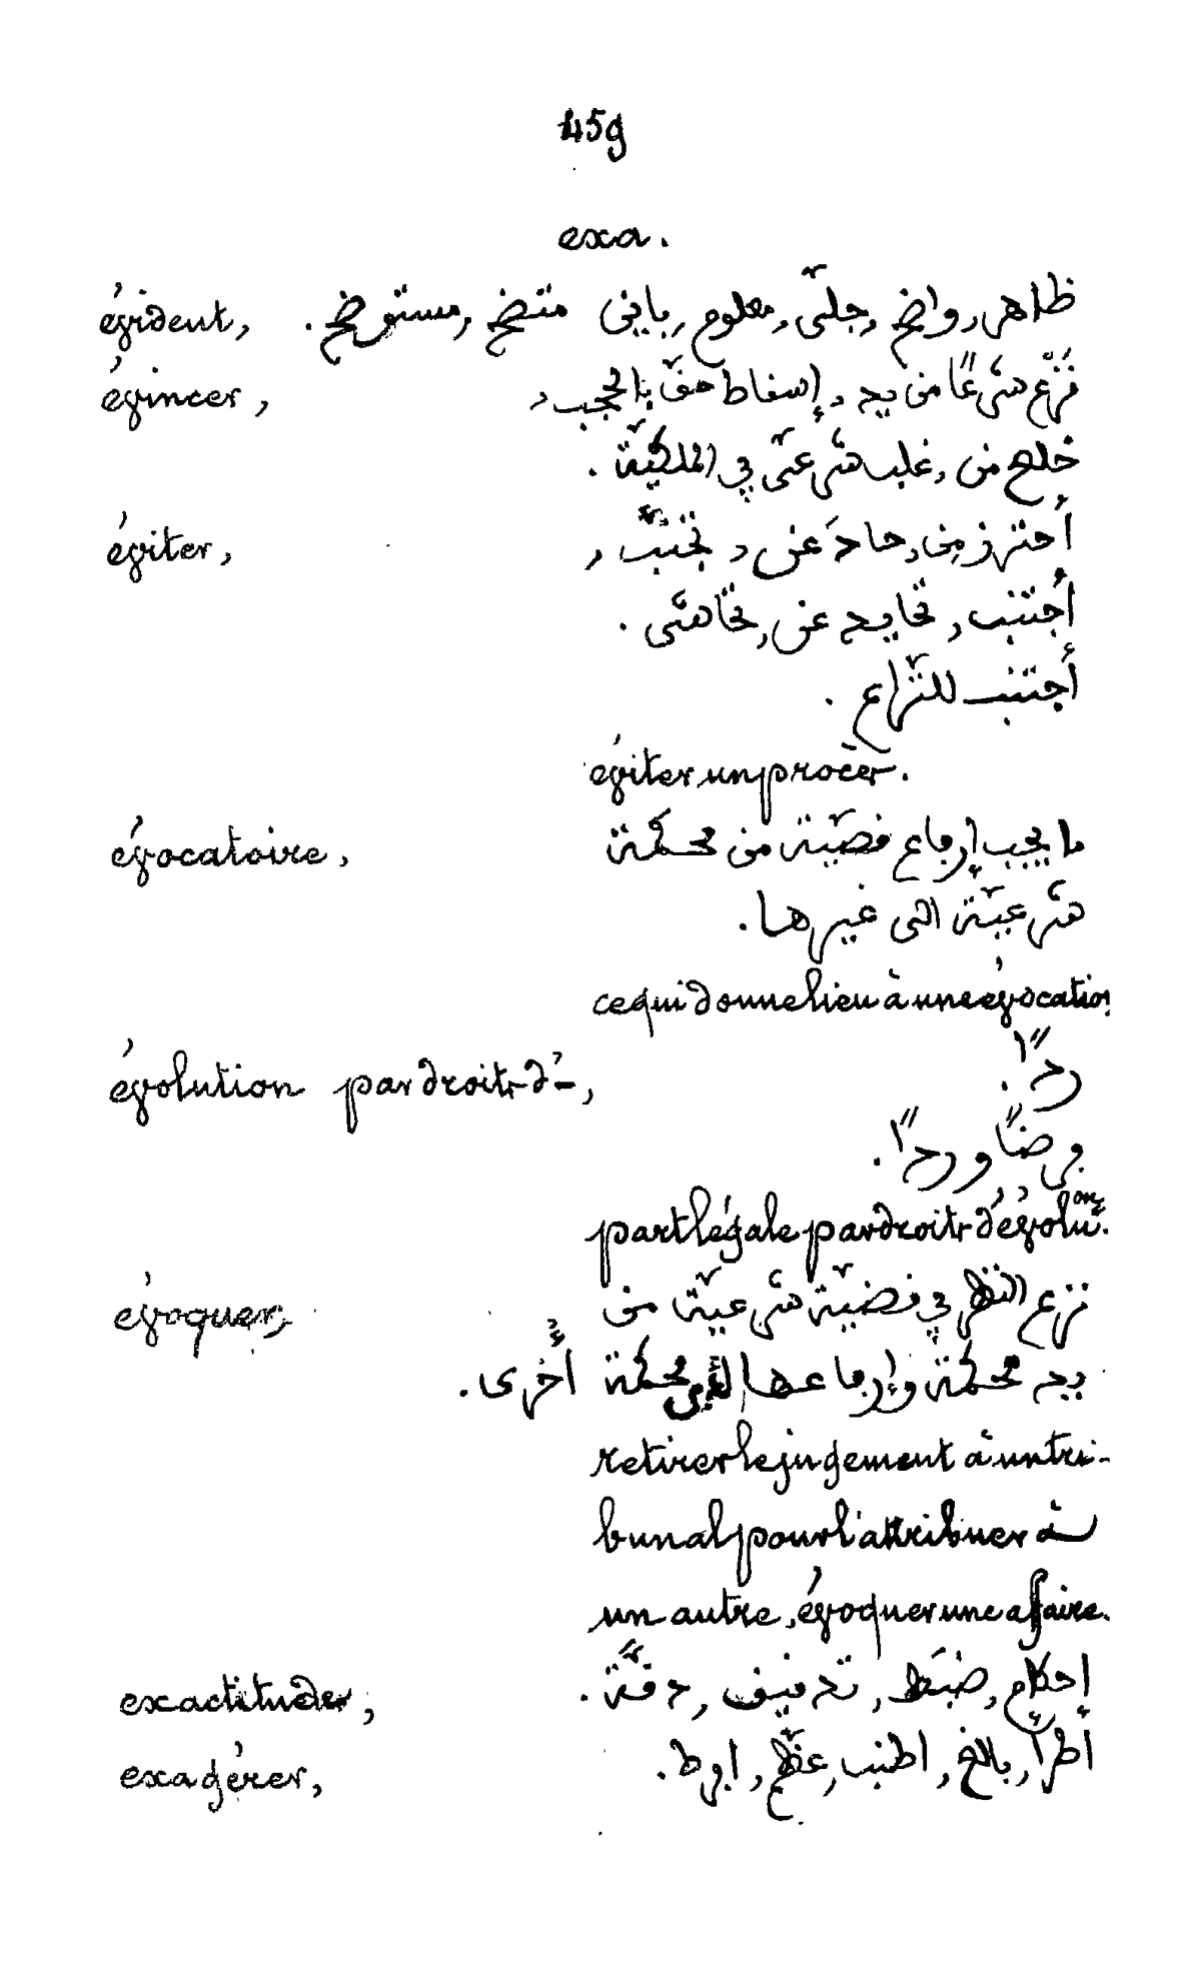 459
exa.
évident, ظاهر, واضح, جليّ, معلوم, باين, متضح, مستوضح.
évincer, نزّع شرعًا من يد, إسقاط حقّ بالحجب,
خلع من, غلب شرعيّ في الملكيّة.
éviter, أحترز من, حادَ عن, تجنّب,
أجتنب, تحايد عن, تحاشى.
أجتنب للنّزاع.
éviter un procèr.
évocatoire, ما يجب إرجاع قضيّة من محكمة
شرعيّة الى غيرها.
ce qui donne lieu à une évocation
évolution par droit d'-, ردًّا.
فرضًا وردًّا.
part légale par droit d'évolu.on
évoquer, نزع النّظر في قضيّة شرعيّة من
يد محكمة وإرجاعها محكمة أخرى.
retirer le jugement à un tri-
bunal pour l'attribuer à
un autre, évoquer une affaire.
exactitude, إحكام, ضبط, تدقيق, دقّة.
exagérer, أطرأ, بالغ, اطنب, عظّم, افرط.